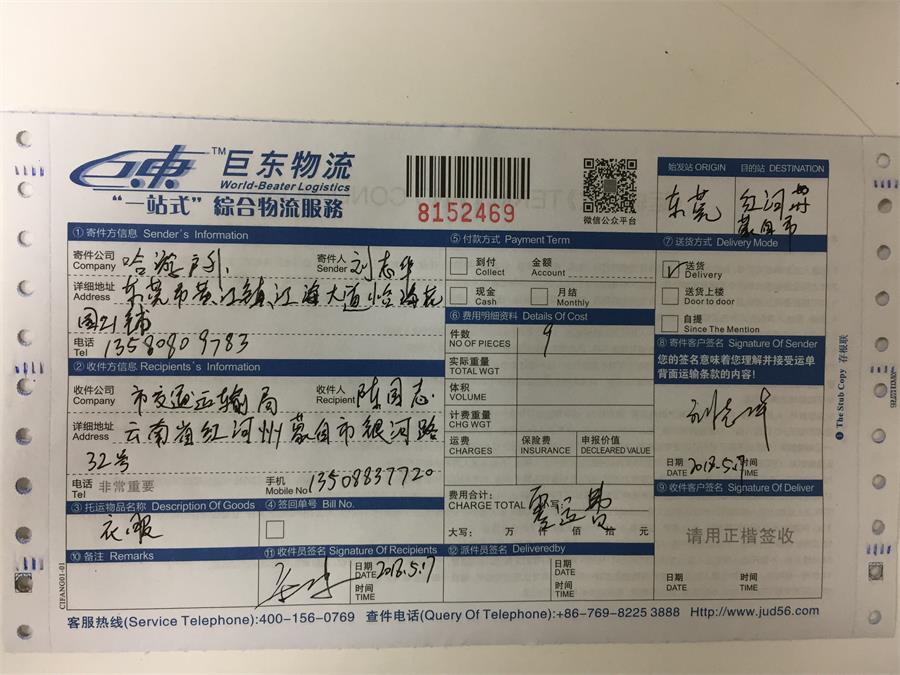 巨东物流 TM
World-Beater Logistics
“一站式”綜合物流服務
8152469
微信公众平台
始发站 ORIGIN 目的站 DESTINATION
东莞 红河州
蒙自市
①寄件方信息 Sender's Information
寄件公司 Company 哈游户外 寄件人 Sender 刘志华
详细地址 Address 东莞市黄江镇江海大道怡海花
园21铺
电话 Tel 13580809783
②收件方信息 Recipients's Information
收件公司 Company 市交通运输局 收件人 Recipient 陈国志
详细地址 Address 云南省红河州蒙自市银河路
32号
电话 Tel 非常重要 手机 Mobile No 13508837720
③托运物品名称 Description Of Goods ④签回单号 Bill No.
衣服
⑤付款方式 Payment Term
到付 Collect 金额 Account
现金 Cash 月结 Monthly
⑥费用明细资料 Details Of Cost
件数 NO OF PIECES 9
实际重量 TOTAL WGT
体积 VOLUME
计费重量 CHG WGT
运费 CHARGES 保险费 INSURANCE 申报价值 DECLEARED VALUE
费用合计: CHARGE TOTAL
大写: 万 仟 佰 拾 元
⑦送货方式 Delivery Mode
送货 Delivery
送货上楼 Door to door
自提 Since The Mention
⑧寄件客户签名 Signature Of Sender
您的签名意味着您理解并接受运单
背面运输条款的内容!
日期 DATE 2018.5.17 时间 TIME
⑨收件客户签名 Signature Of Deliver
请用正楷签收
日期 DATE 时间 TIME
⑩备注 Remarks ⑪收件员签名 Signature Of Recipients ⑫派件员签名 Deliveredby
日期 DATE 2018.5.17 日期 DATE
时间 TIME 时间 TIME
CIFANG01-01
❶ The Stub Copy 存根联
客服热线(Service Telephone):400-156-0769 查件电话(Query Of Telephone):+86-769-8225 3888 Http://www.jud56.com